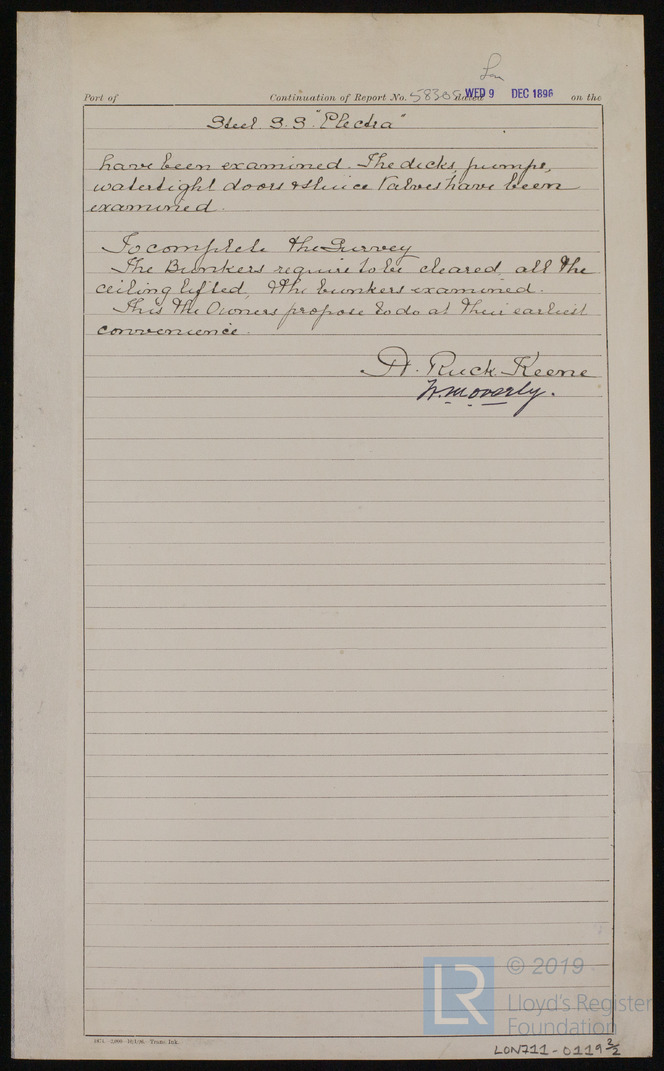 Lon
Port of Continuation of Report No. 58305 dated WED 9 DEC 1896 on the
Steel S.S. "Electra"
have been examined. The decks, pumps,
watertight doors & sluice valves have been
examined.
To complete the Survey
The Bunkers require to be cleared, all the
ceiling lifted, & the bunkers examined.
This the Owners propose to do at their earliest
convenience.
A. Ruck Keene
W. Moverly.
LR © 2019
Lloyd's Register
Foundation
LON711-0119 2/2